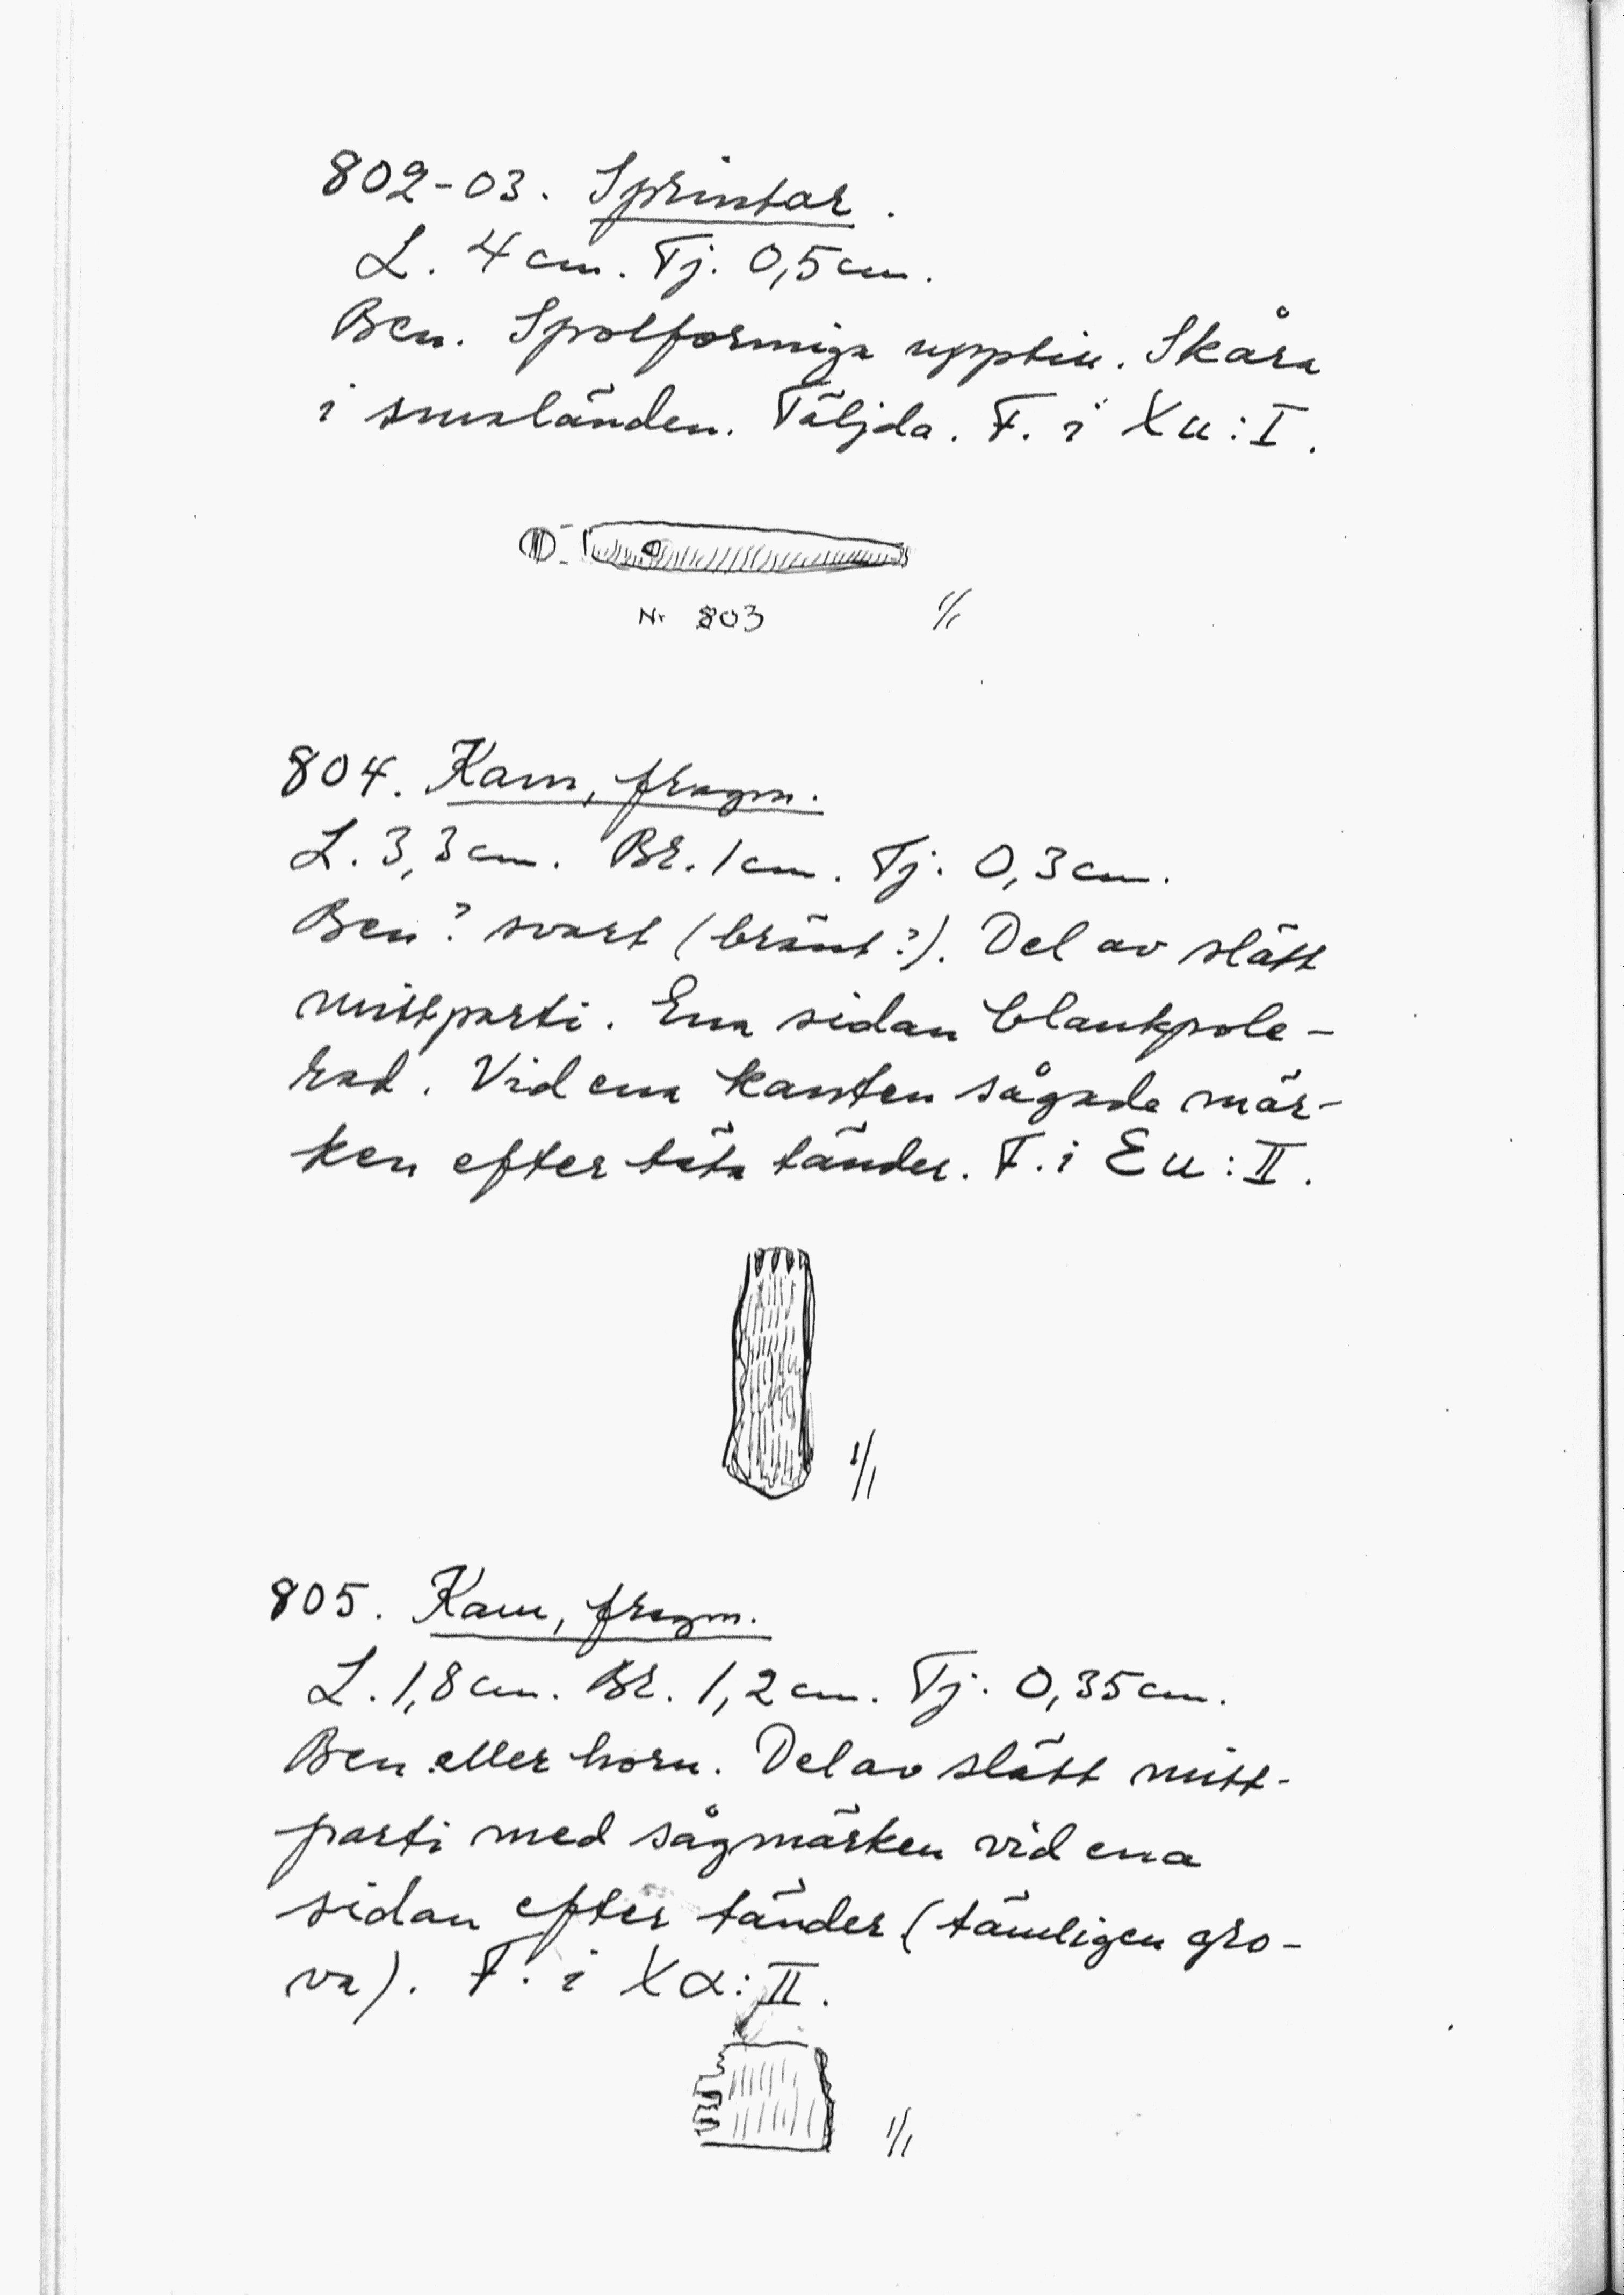 802-03. Sprintar.
L. 4 cm. Tj. 0,5 cm.
Ben. Spolformiga upptill. Skåra
i smaländen. Täljda. F. i Xu:I.
Nr 803 1/1
804. Kam, fragm.
L. 3,3 cm. Br. 1 cm. Tj. 0,3 cm.
Ben? svart (bränt?). Del av slätt
mittparti. Ena sidan blankpole-
rad. Vid ena kanten sågade mär-
ken efter täta tänder. F. i Eu:II.
1/1
805. Kam, fragm.
L. 1,8 cm. Br. 1,2 cm. Tj. 0,35 cm.
Ben eller horn. Del av slätt mitt-
parti med sågmärken vid ena
sidan efter tänder (tämligen gro-
va). F. i Xα:II.
1/1